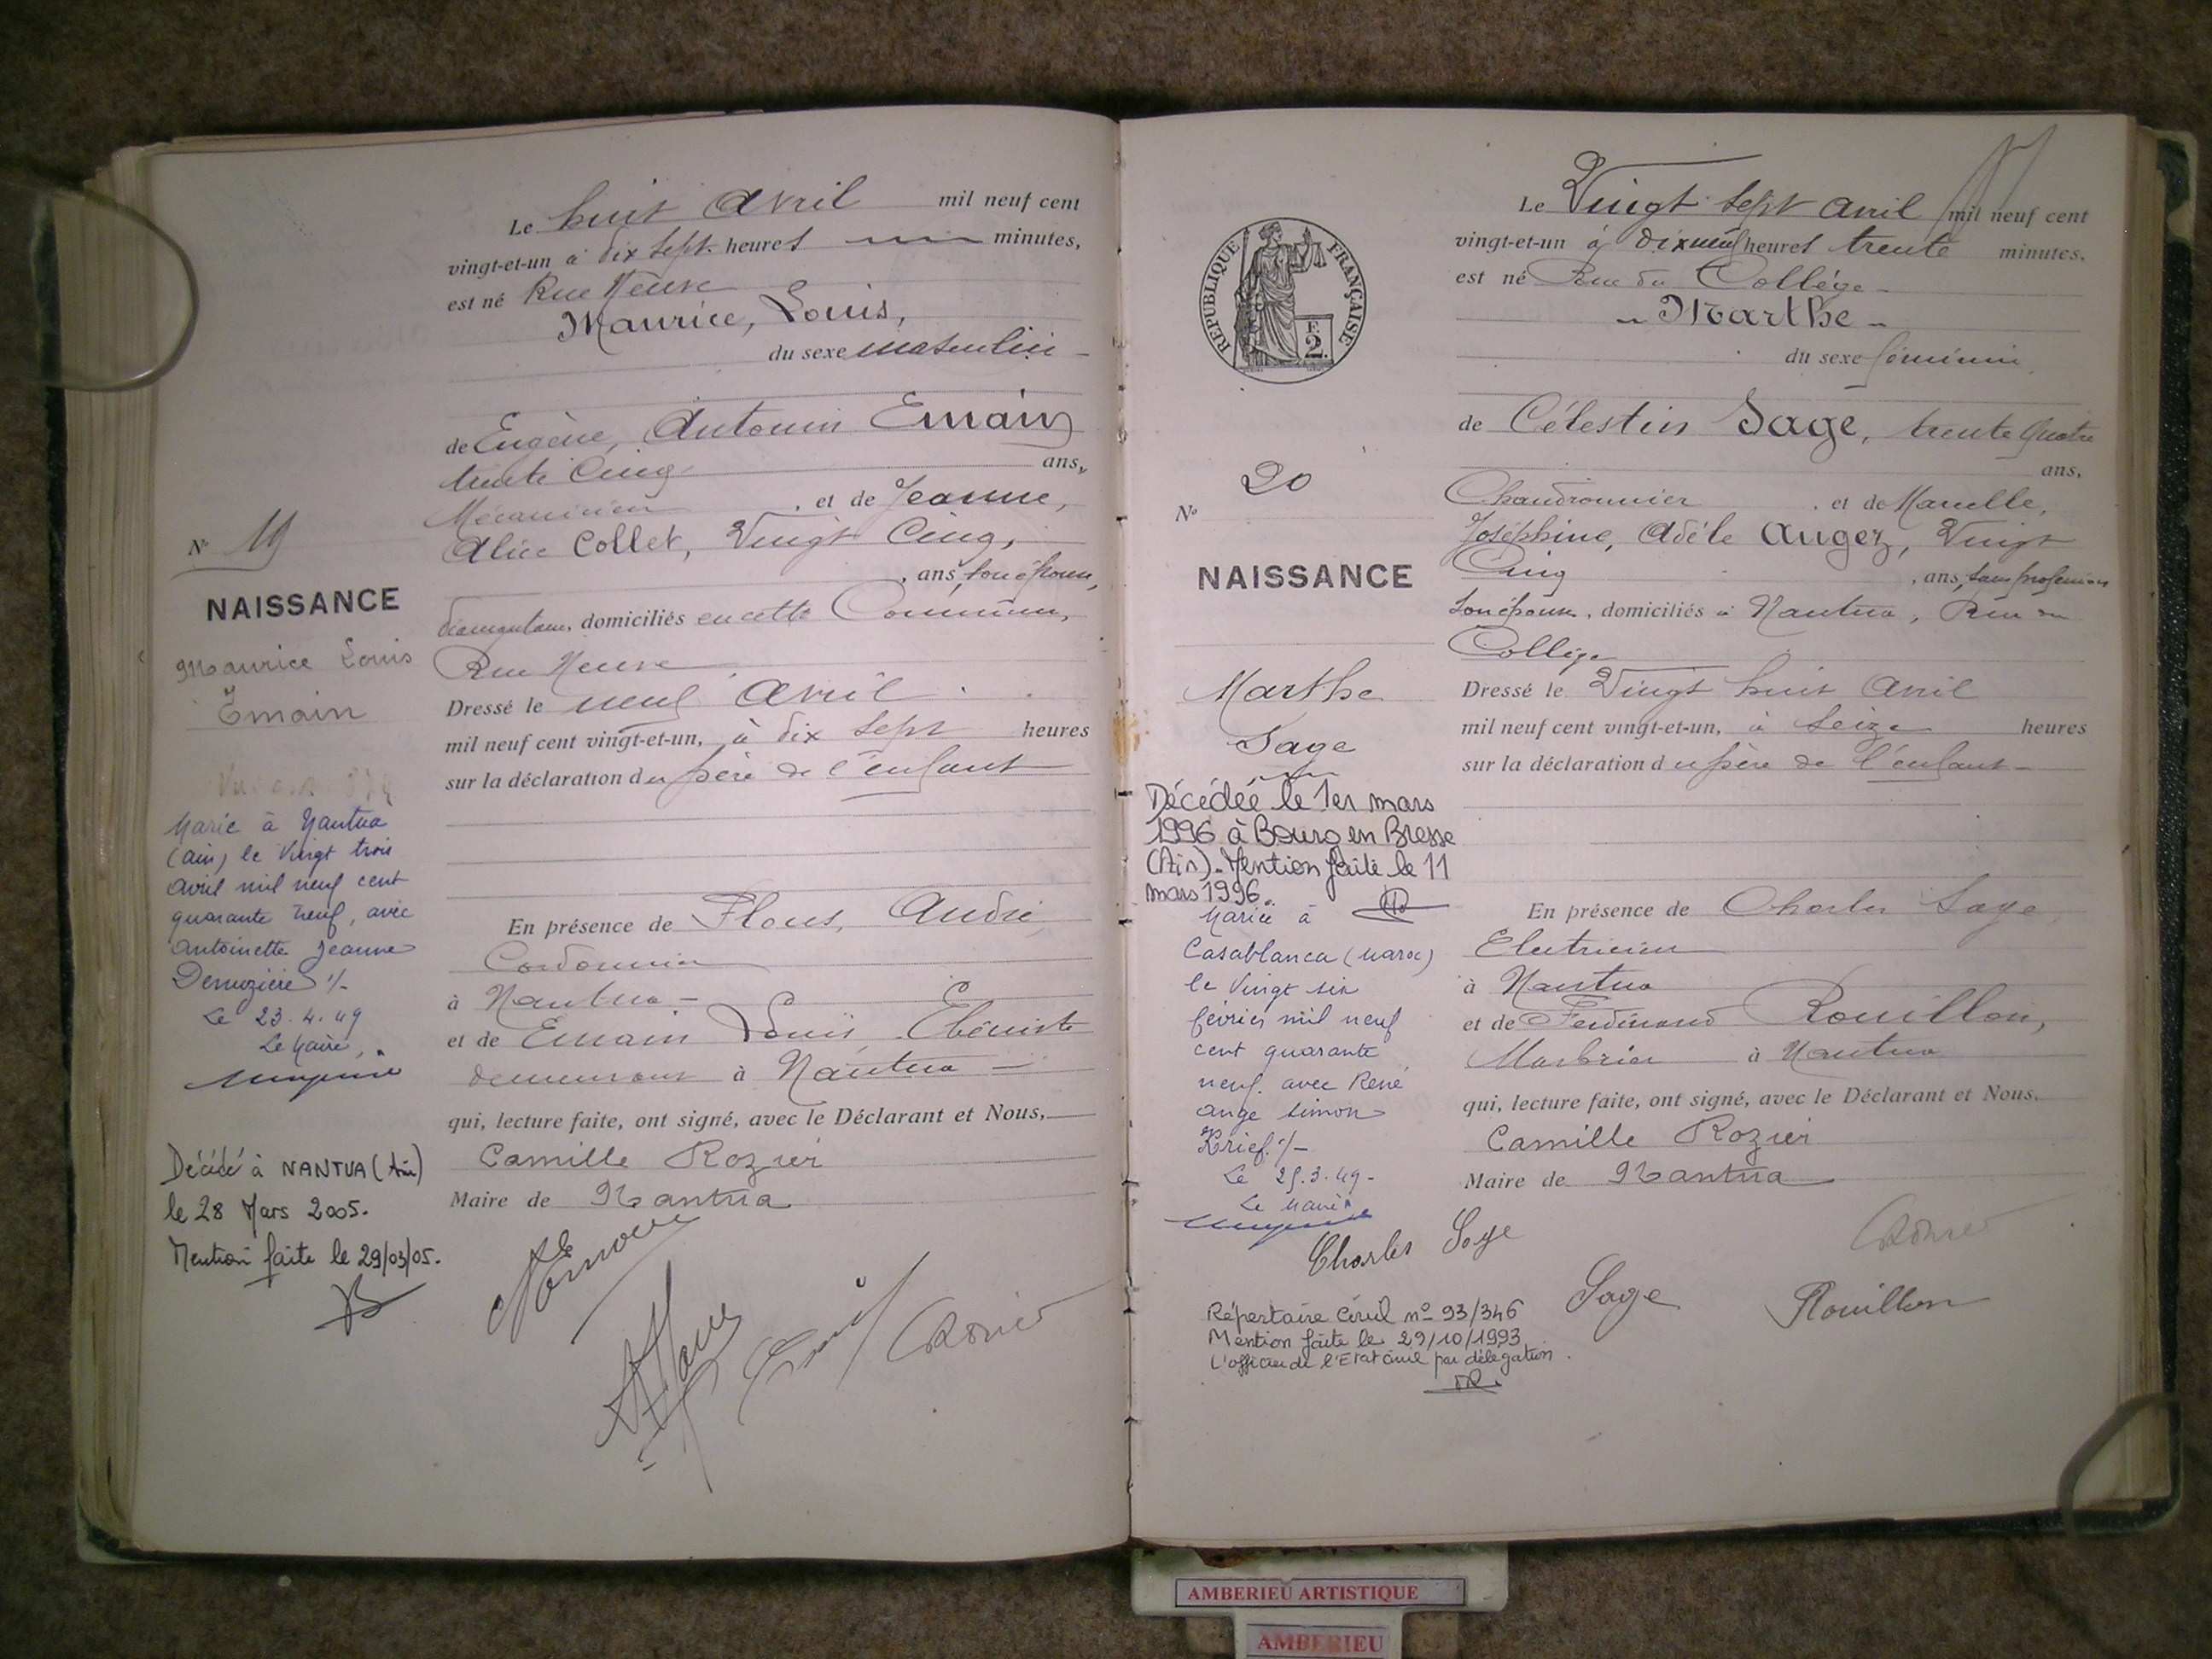 Le huit Avril mil neuf cent
vingt-et-un à dix sept heures minutes,
est né Rue Neuve
Maurice, Louis,
du sexe masculin
de Eugène, Antonin Emain
trente Cinq ans,
Mécanicien, et de Jeanne,
Alice Collet, Vingt Cinq,
, ans, son épouse,
domiciliés en cette Commune,
Rue Neuve
Dressé le neuf Avril
mil neuf cent vingt-et-un, à dix sept heures
sur la déclaration du père de l'enfant
En présence de Flous, André
Cordonnier
à Nantua
et de Emain Louis, Ebéniste
demeurant à Nantua
qui, lecture faite, ont signé, avec le Déclarant et Nous,
Camille Rozier
Maire de Nantua
N° 19
NAISSANCE
Maurice Louis
Emain
Marié à Nantua
(Ain) le Vingt trois
avril mil neuf cent
quarante neuf, avec
Antoinette Jeanne
Demozière ·/-
Le 23.4.49
Le Maire,
Décédé à NANTUA (Ain)
le 28 Mars 2005.
Mention faite le 29/03/05.
Le Vingt sept avril mil neuf cent
vingt-et-un à dix neuf heures trente minutes,
est né Rue du Collége
Marthe
du sexe féminin
de Célestin Sage, trente quatre
ans,
Chaudronnier, et de Marcelle,
Joséphine, Adèle Auger, Vingt
Cinq, ans, sans profession
son épouse, domiciliés à Nantua, Rue du
Collége
Dressé le Vingt huit Avril
mil neuf cent vingt-et-un, à Seize heures
sur la déclaration du père de l'enfant
En présence de Charles Sage
Electricien
à Nantua
et de Ferdinand Rouillon,
Marbrier à Nantua
qui, lecture faite, ont signé, avec le Déclarant et Nous,
Camille Rozier
Maire de Nantua
RÉPUBLIQUE FRANÇAISE
E.
2.
N° 20
NAISSANCE
Marthe
Sage
Décédée le 1er mars
1996 à Bourg en Bresse
(Ain). Mention faite le 11
mars 1996.
Mariée à
Casablanca (Maroc)
le Vingt six
février mil neuf
cent quarante
neuf. avec René
Ange Simon
Krief ·/-
Le 25.3.49-
Le Maire
Charles Sage
Sage
Rozier
Rouillon
Répertoire Civil n° 93/346
Mention faite le 29/10/1993
L'officier de l'Etat civil par délégation.
AMBERIEU ARTISTIQUE
AMBERIEU